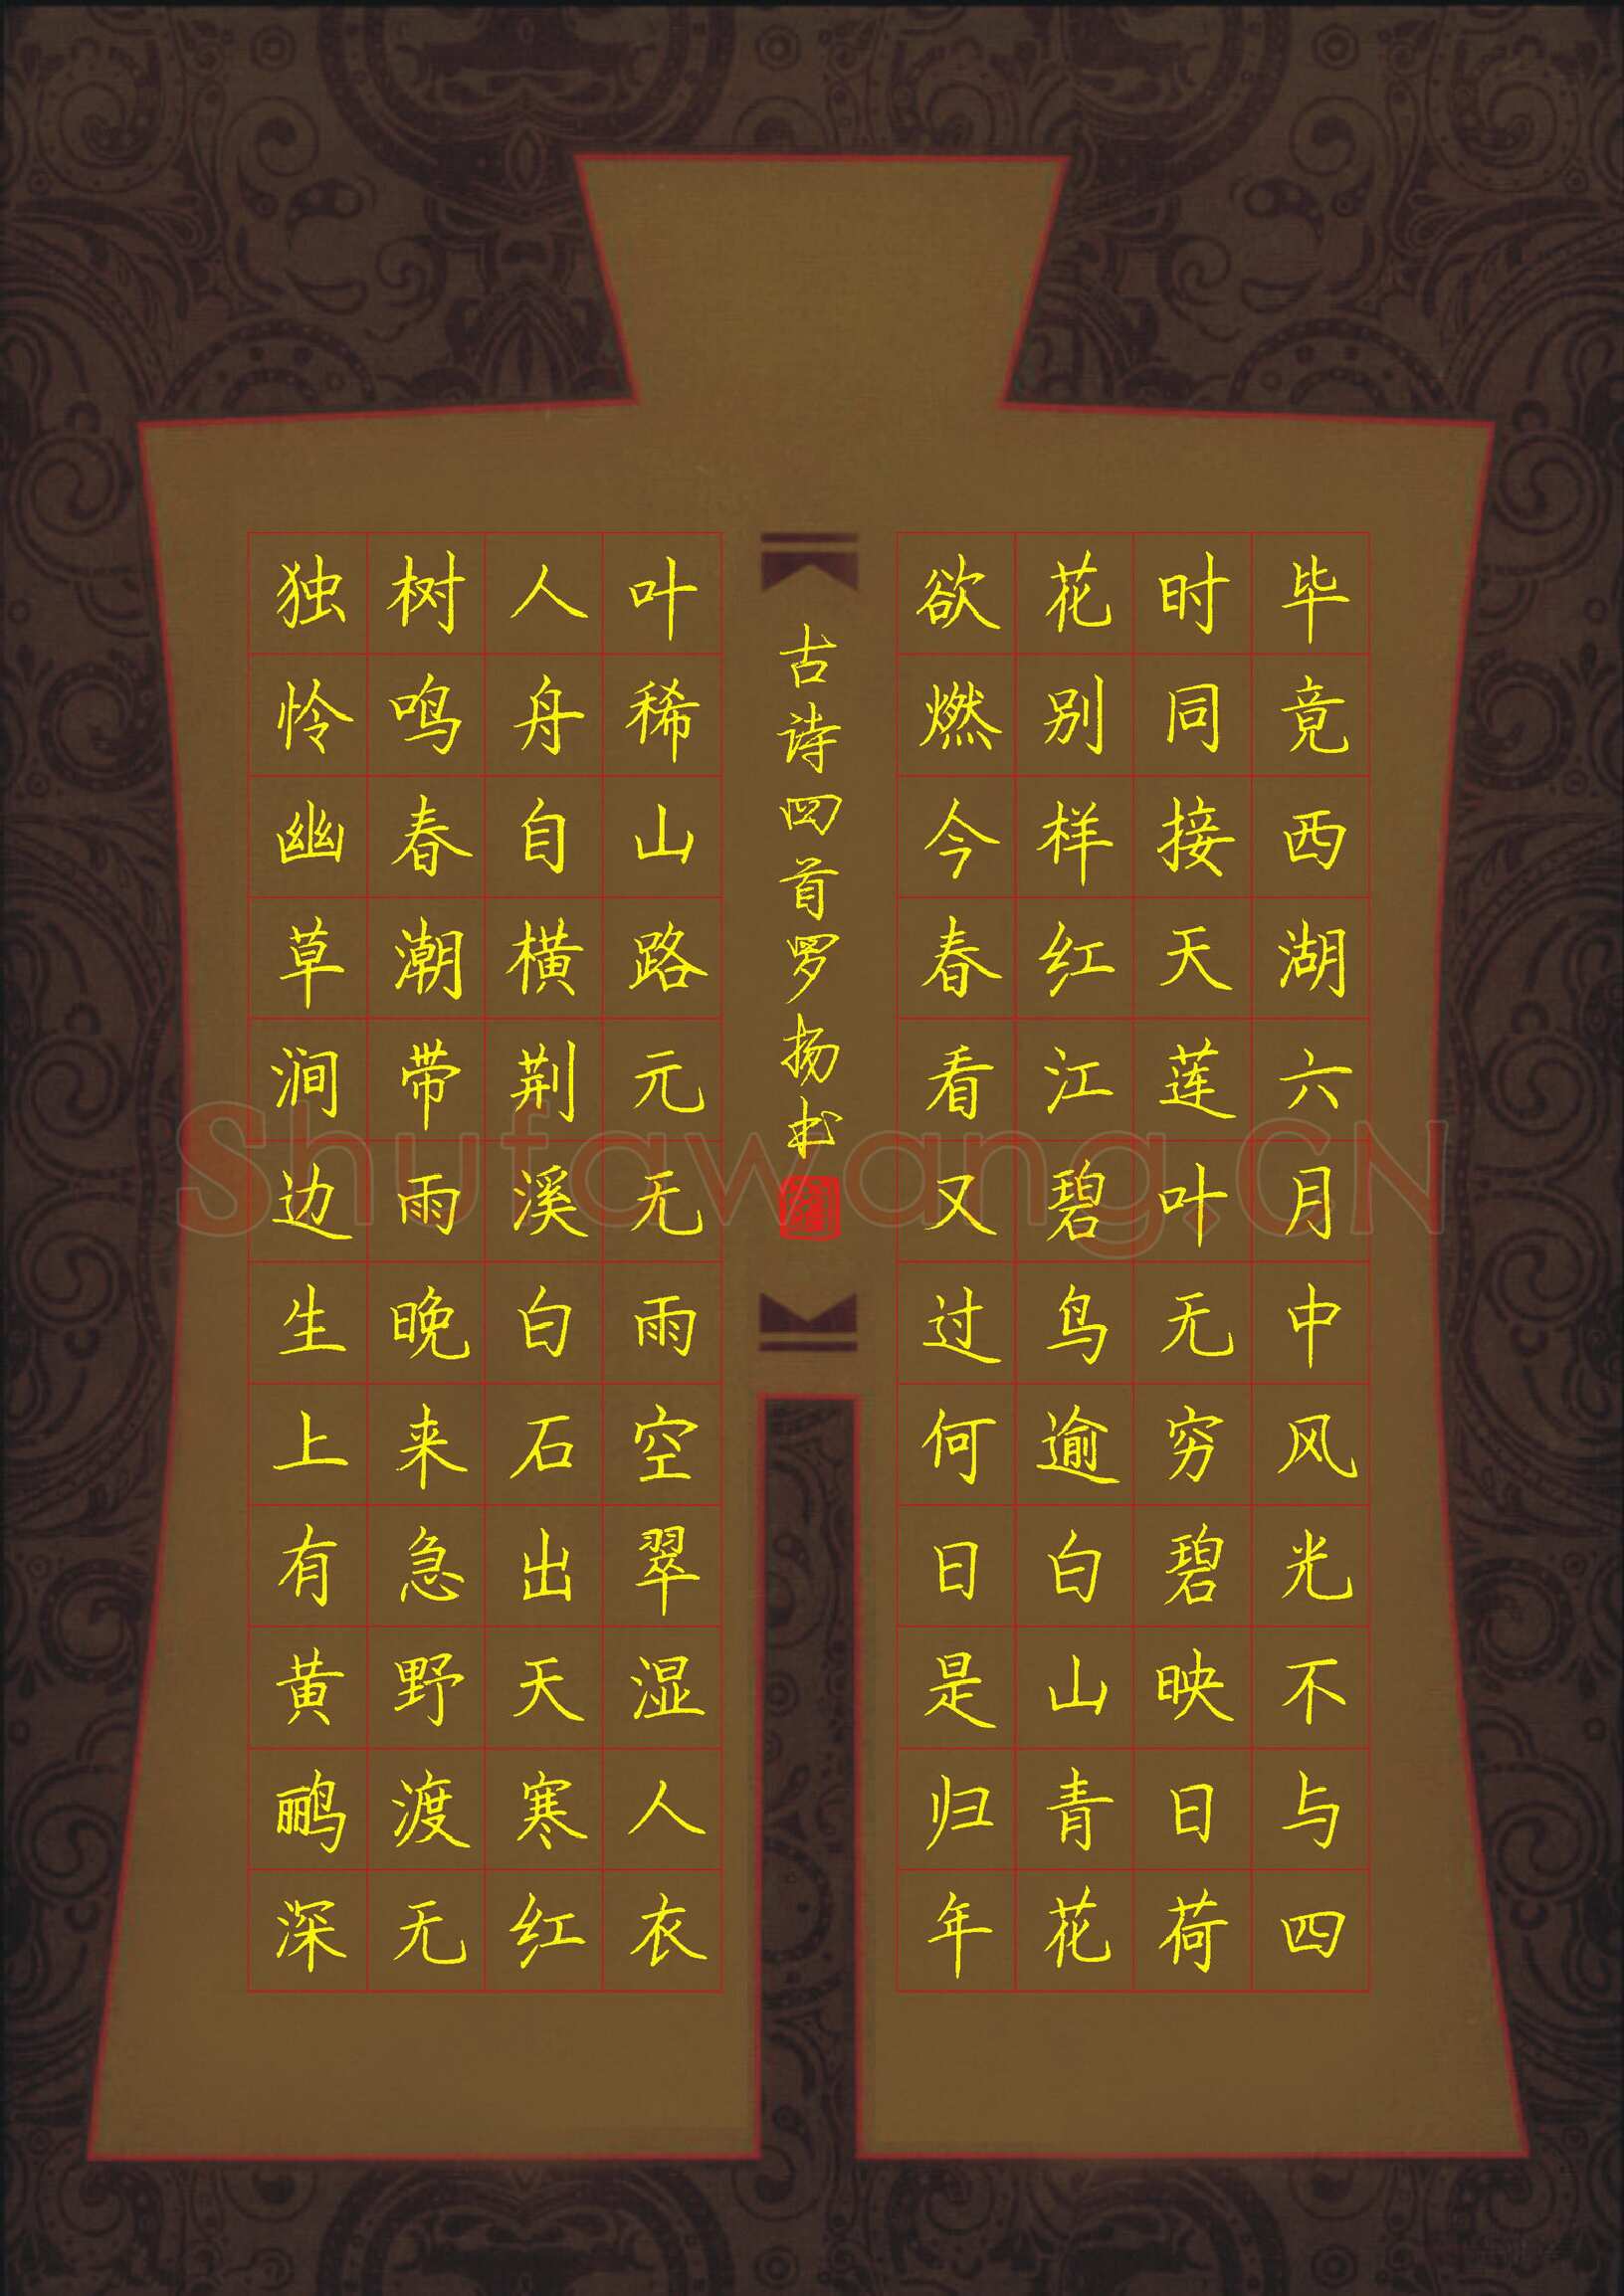 毕竟西湖六月中风光不与四
时同接天莲叶无穷碧映日荷
花别样红江碧鸟逾白山青花
欲燃今春看又过何日是归年
古诗四首罗扬书
叶稀山路元无雨空翠湿人衣
人舟自横荆溪白石出天寒红
树鸣春潮带雨晚来急野渡无
独怜幽草涧边生上有黄鹂深
Shufawang.CN